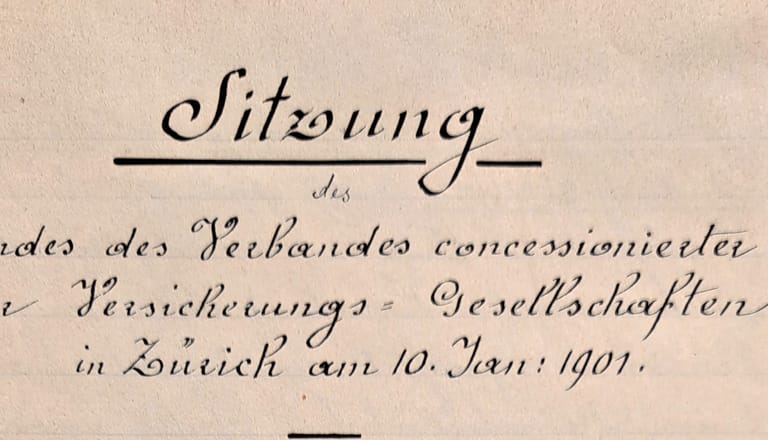 Sitzung
des
ndes des Verbandes concessionierter
r Versicherungs= Gesellschaften
in Zürich am 10. Jan: 1901.